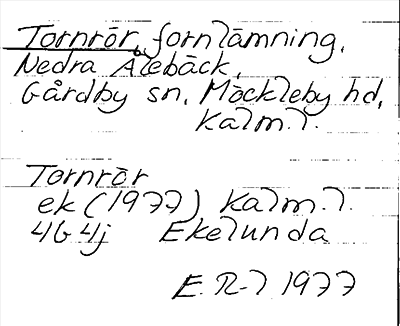 Tornrör, fornlämning,
Nedra Ålebäck,
Gårdby sn, Möckleby hd,
Kalm.l.
Tornrör
ek (1977) Kalm.l.
4G 4j Ekelunda
E.R-l 1977